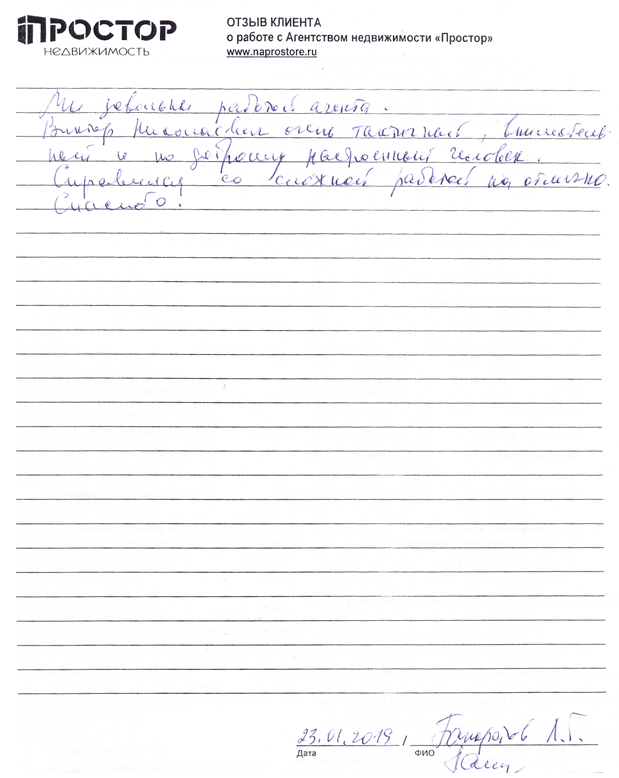 ПРОСТОР
НЕДВИЖИМОСТЬ
ОТЗЫВ КЛИЕНТА
о работе с Агентством недвижимости «Простор»
www.naprostore.ru
Мы довольны работой агента.
Виктор Николаевич очень тактичный, вниматель-
ный и по доброму настроенный человек.
Справился со сложной работой на отлично.
Спасибо!
23.01.2019 Л.Г.
Дата ФИО